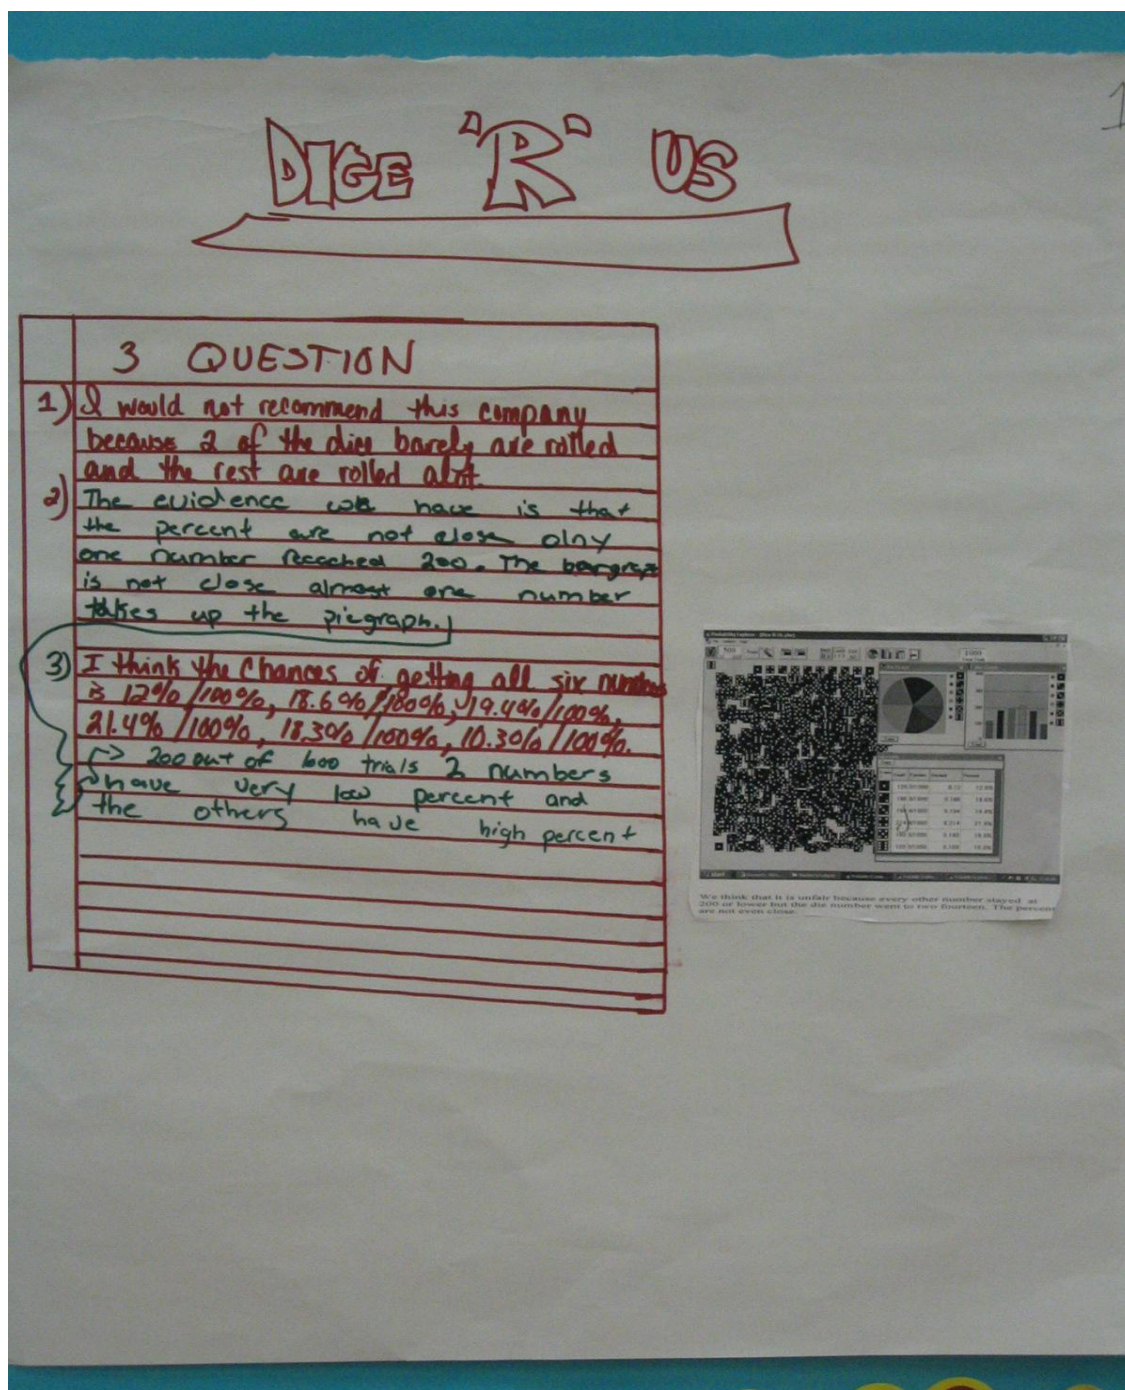 1
DICE "R" US
3 QUESTION
1) I would not recommend this company
because 2 of the dice barely are rolled
and the rest are rolled alot.
2) The evidence we have is that
the percent are not close olny
one number reached 200. The bargraph
is not close almost one number
takes up the piegraph.
3) I think the chances of getting all six numbers
is 12%/100%, 18.6%/100%, 19.4%/100%,
21.4%/100%, 18.3%/100%, 10.3%/100%.
200 out of 600 trials 2 numbers
have very low percent and
the others have high percent
We think that it is unfair because every other number stayed at
200 or lower but the die number went to two fourteen. The percent
are not even close.